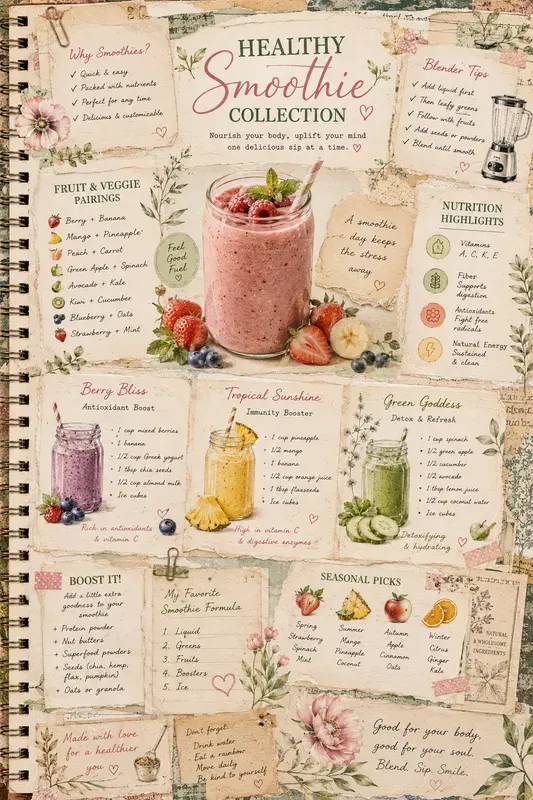 Why Smoothies?
✓ Quick & easy
✓ Packed with nutrients
✓ Perfect for any time
✓ Delicious & customizable
HEALTHY
Smoothie
COLLECTION
Nourish your body, uplift your mind
one delicious sip at a time.
Blender Tips
✓ Add liquid first
✓ Then leafy greens
✓ Follow with fruits
✓ Add seeds or powders
✓ Blend until smooth
FRUIT & VEGGIE
PAIRINGS
Berry + Banana
Mango + Pineapple
Peach + Carrot
Green Apple + Spinach
Avocado + Kale
Kiwi + Cucumber
Blueberry + Oats
Strawberry + Mint
Feel
Good
Fuel
A smoothie
a day keeps
the stress
away
NUTRITION
HIGHLIGHTS
Vitamins
A, C, K, E
Fiber
Supports
digestion
Antioxidants
Fight free
radicals
Natural Energy
Sustained
& clean
Berry Bliss
Antioxidant Boost
• 1 cup mixed berries
• 1 banana
• 1/2 cup Greek yogurt
• 1 tbsp chia seeds
• 1/2 cup almond milk
• Ice cubes
Rich in antioxidants
& vitamin C
Tropical Sunshine
Immunity Booster
• 1 cup pineapple
• 1/2 mango
• 1 banana
• 1/2 cup orange juice
• 1 tbsp flaxseeds
• Ice cubes
High in vitamin C
& digestive enzymes
Green Goddess
Detox & Refresh
• 1 cup spinach
• 1/2 green apple
• 1/2 cucumber
• 1/2 avocado
• 1 tbsp lemon juice
• 1/2 cup coconut water
• Ice cubes
Detoxifying
& hydrating
BOOST IT!
Add a little extra
goodness to your
smoothie
+ Protein powder
+ Nut butters
+ Superfood powders
+ Seeds (chia, hemp,
flax, pumpkin)
+ Oats or granola
My Favorite
Smoothie Formula
1. Liquid
2. Greens
3. Fruits
4. Boosters
5. Ice
SEASONAL PICKS
Spring
Strawberry
Spinach
Mint
Summer
Mango
Pineapple
Coconut
Autumn
Apple
Cinnamon
Oats
Winter
Citrus
Ginger
Kale
NATURAL
& WHOLESOME
INGREDIENTS
Made with love
for a healthier
you
Don't forget...
Drink water
Eat a rainbow
Move daily
Be kind to yourself
Good for your body,
good for your soul.
Blend. Sip. Smile.